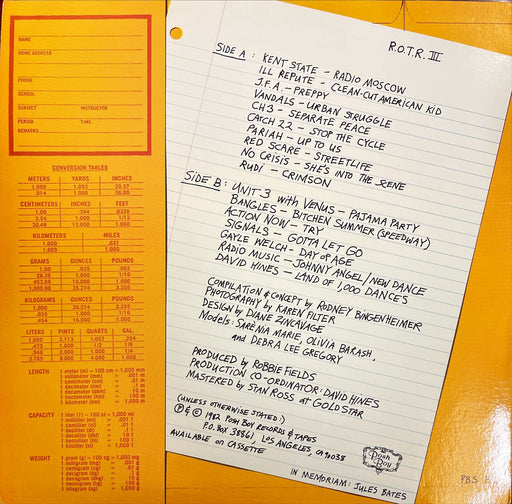 NAME
HOME ADDRESS
PHONE
SCHOOL
SUBJECT INSTRUCTOR
PERIOD TIME
REMARKS
CONVERSION TABLES
METERS YARDS INCHES
1.000 1.093 39.37
.914 1.000 36.00
CENTIMETERS INCHES FEET
1.00 .394 .0328
2.54 1.000 1/12
30.48 12.000 1.000
KILOMETERS MILES
1.000 .621
1.609 1.000
GRAMS OUNCES POUNDS
1.00 .035 .002
28.35 1.000 1/16
453.59 16.000 1.000
1,000.00 35.274 2.205
KILOGRAMS OUNCES POUNDS
1.000 35.274 2.205
.028 1.000 1/16
.454 16.000 1.000
LITERS PINTS QUARTS GAL.
1.000 2.113 1.057 .264
.473 1.000 1/2 1/8
.946 2.000 1.000 1/4
3.785 8.000 4.000 1.000
LENGTH 1 meter (m) = 100 cm = 1,000 mm
1 millimeter (mm) = .001 m
1 centimeter (cm) = .01 m
1 decimeter (dm) = .1 m
1 decameter (dkm) = 10 m
1 hectometer (hm) = 100 m
1 kilometer (km) = 1,000 m
CAPACITY 1 liter (l) = 100 cl = 1,000 ml
1 milliliter (ml) = .001 l
1 centiliter (cl) = .01 l
1 deciliter (dl) = .1 l
1 decaliter (dkl) = 10 l
1 hectoliter (hl) = 100 l
1 kiloliter (kl) = 1,000 l
WEIGHT 1 gram (g) = 100 cg = 1,000 mg
1 milligram (mg) = .001 g
1 centigram (cg) = .01 g
1 decigram (dg) = .1 g
1 decagram (dkg) = 10 g
1 hectogram (hg) = 100 g
1 kilogram (kg) = 1,000 g
R.O.T.R. III
SIDE A: KENT STATE - RADIO MOSCOW
ILL REPUTE - CLEAN-CUT AMERICAN KID
J.F.A. - PREPPY
VANDALS - URBAN STRUGGLE
CH3 - SEPARATE PEACE
CATCH 22 - STOP THE CYCLE
PARIAH - UP TO US
RED SCARE - STREETLIFE
NO CRISIS - SHE'S INTO THE SCENE
RUDI - CRIMSON
SIDE B: UNIT 3 with VENUS - PAJAMA PARTY
BANGLES - BITCHEN SUMMER (SPEEDWAY)
ACTION NOW - TRY
SIGNALS - GOTTA LET GO
GAYLE WELCH - DAY OF AGE
RADIO MUSIC - JOHNNY ANGEL/NEW DANCE
DAVID HINES - LAND OF 1,000 DANCES
COMPILATION & CONCEPT by RODNEY BINGENHEIMER
PHOTOGRAPHY by KAREN FILTER
DESIGN by DIANE ZINCAVAGE
Models: SARENIA MARIE, OLIVIA BARASH,
and DEBRA LEE GREGORY
PRODUCED by ROBBIE FIELDS
PRODUCTION CO-ORDINATOR: DAVID HINES
MASTERED by STAN ROSS at GOLD STAR
(UNLESS OTHERWISE STATED:)
℗ & © 1982 POSH BOY RECORDS & TAPES
P.O. BOX 38861, LOS ANGELES, CA 90038
AVAILABLE ON CASSETTE
The Posh Boy
IN MEMORIAM: JULES BATES